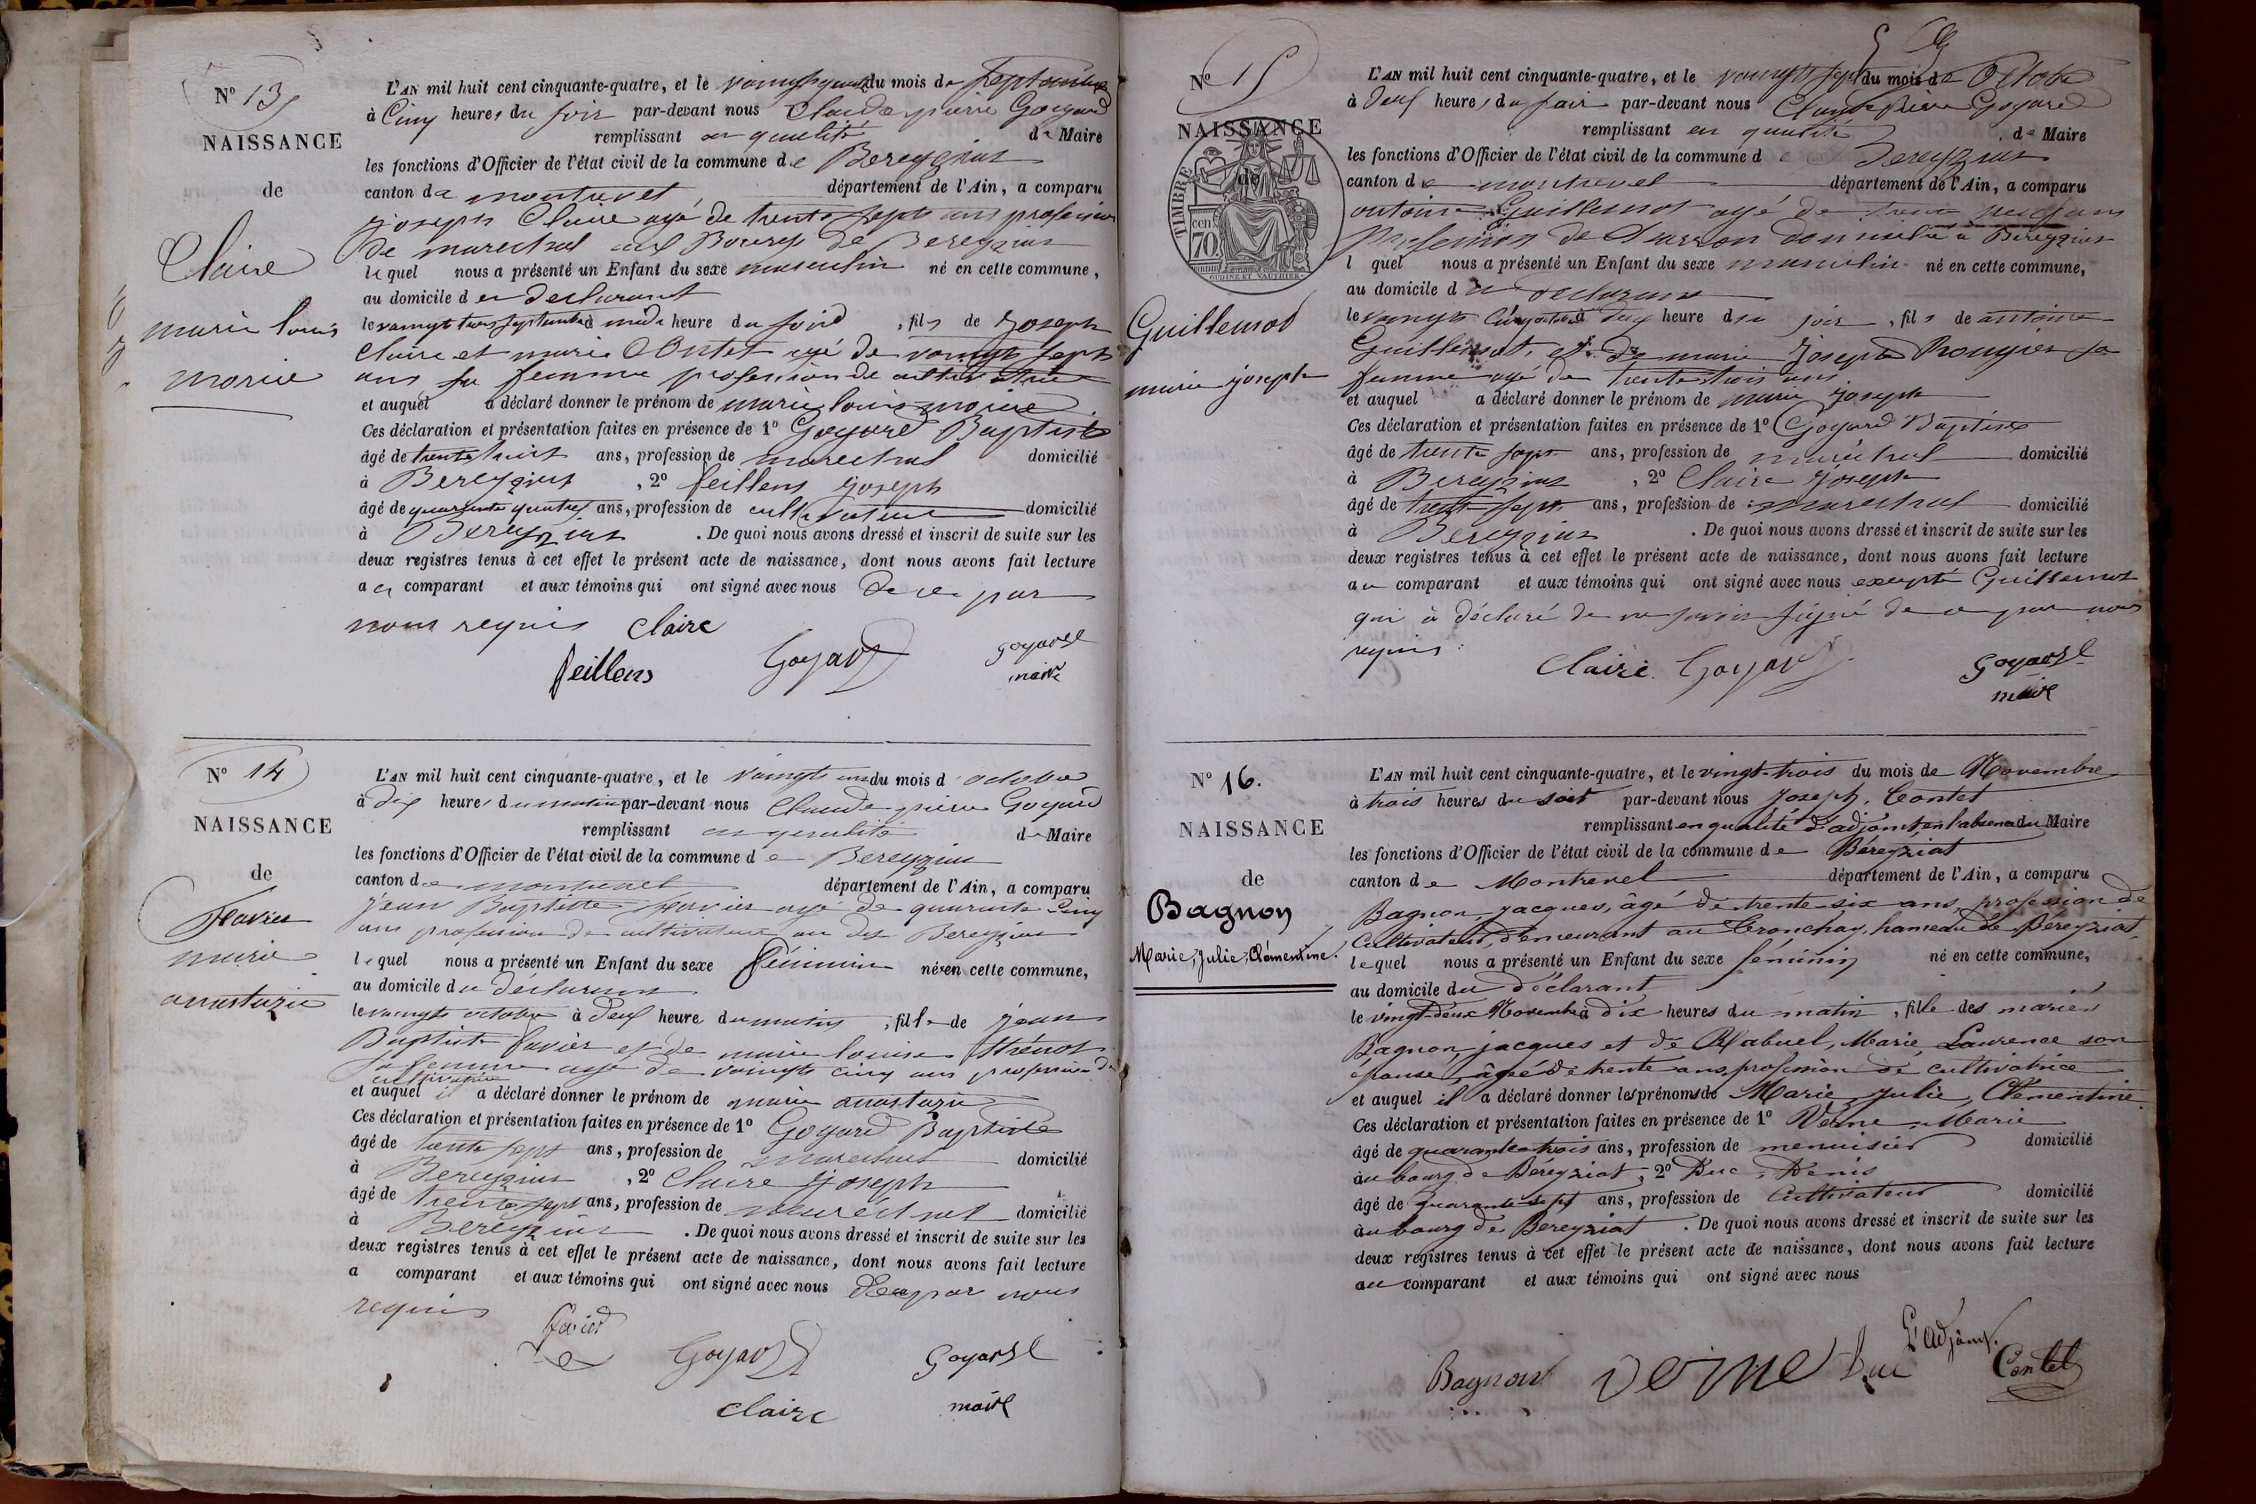 N° 13
NAISSANCE
de
Claire
marie louis
marie
L'AN mil huit cent cinquante-quatre, et le du mois de septembre
à Cinq heures du soir par-devant nous Claude pierre Goyard
remplissant en qualité de Maire
les fonctions d'Officier de l'état civil de la commune de Bereyziat
canton de montrevel département de l'Ain, a comparu
joseph Claire agé de trente sept ans profession
de marechal au Bourg de Bereyziat
lequel nous a présenté un Enfant du sexe masculin né en cette commune,
au domicile du declarant
le vaingt trois septembre à heure du soir, fils de joseph
Claire et marie Contet agé de vaingt sept
ans sa femme profession de cultivatrice
et auquel a déclaré donner le prénom de marie louis marie
Ces déclaration et présentation faites en présence de 1° Goyard Baptiste
âgé de trente huit ans, profession de marechal domicilié
à Bereyziat, 2° feillens joseph
âgé de quarente quatre ans, profession de cultivateur domicilié
à Bereyziat. De quoi nous avons dressé et inscrit de suite sur les
deux registres tenus à cet effet le présent acte de naissance, dont nous avons fait lecture
au comparant et aux témoins qui ont signé avec nous De ce par
nous requis Claire
feillens Goyard Goyard
maire
N° 14
NAISSANCE
de
Favier
marie
anastazie
L'AN mil huit cent cinquante-quatre, et le vaingt un du mois d octobre
à dix heures du matin par-devant nous Claude pierre Goyard
remplissant en qualité de Maire
les fonctions d'Officier de l'état civil de la commune de Bereyziat
canton de montrevel département de l'Ain, a comparu
jean Baptiste favier agé de quarente cinq
ans profession de cultivateur au Bereyziat
lequel nous a présenté un Enfant du sexe féminin née en cette commune,
au domicile du declarant
le vaingt octobre à deux heure du matin, fille de jean
Baptiste favier et de marie louise thénot
sa femme agé de vaingt cinq ans profession de
cultivatrice
et auquel il a déclaré donner le prénom de marie anastazie
Ces déclaration et présentation faites en présence de 1° Goyard Baptiste
âgé de trente sept ans, profession de marechal domicilié
à Bereyziat, 2° Claire joseph
âgé de trente sept ans, profession de maréchal domicilié
à Bereyziat. De quoi nous avons dressé et inscrit de suite sur les
deux registres tenus à cet effet le présent acte de naissance, dont nous avons fait lecture
a comparant et aux témoins qui ont signé avec nous De ce par nous
requis
favier
Goyard Goyard
Claire maire
N° 15
NAISSANCE
de
TIMBRE
70 cen
Guillemot
marie joseph
L'AN mil huit cent cinquante-quatre, et le vaingt sept du mois de Octobre
à deux heures du soir par-devant nous Claude pierre Goyard
remplissant en qualité de Maire
les fonctions d'Officier de l'état civil de la commune de Bereyziat
canton de montrevel département de l'Ain, a comparu
antoine Guillemot agé de trente neuf ans
profession de charron domicilié a Bereyziat
l quel nous a présenté un Enfant du sexe masculin né en cette commune,
au domicile du declarant
le vaingt cinq octobre à deux heure du soir, fils de antoine
Guillemot et de marie josephe Rougier sa
femme agé de trente trois ans
et auquel a déclaré donner le prénom de marie joseph
Ces déclaration et présentation faites en présence de 1° Goyard Baptiste
âgé de trente sept ans, profession de maréchal domicilié
à Bereyziat, 2° Claire joseph
âgé de trente sept ans, profession de marechal domicilié
à Bereyziat. De quoi nous avons dressé et inscrit de suite sur les
deux registres tenus à cet effet le présent acte de naissance, dont nous avons fait lecture
au comparant et aux témoins qui ont signé avec nous excepté Guillemot
qui à déclaré de ne savoir signé de ce par nous
requis.
Claire Goyard Goyard
maire
N° 16.
NAISSANCE
de
Bagnon
Marie, Julie, Clémentine.
L'AN mil huit cent cinquante-quatre, et le vingt-trois du mois de Novembre
à trois heures du soir par-devant nous Joseph, Contet
remplissant en qualité d'adjoint, en l'absence du Maire
les fonctions d'Officier de l'état civil de la commune de Béreyziat
canton de Montrevel département de l'Ain, a comparu
Bagnon, jacques, âgé de trente-six ans, profession de
Cultivateur, demeurant au Tronchay, hameau de Béreyziat,
lequel nous a présenté un Enfant du sexe féminin né en cette commune,
au domicile du déclarant
le vingt-deux Novembre à dix heures du matin, fille des mariés
Bagnon, jacques et de Rabuel, Marie, Laurence son
épouse, âgée de trente ans, profession de cultivatrice
et auquel il a déclaré donner les prénoms de Marie, Julie, Clémentine.
Ces déclaration et présentation faites en présence de 1° Verne, Marie
âgé de quarante-trois ans, profession de menuisier domicilié
au bourg de Béreyziat, 2° Duc, Denis
âgé de quarante-sept ans, profession de Cultivateur domicilié
au bourg de Bereyziat. De quoi nous avons dressé et inscrit de suite sur les
deux registres tenus à cet effet le présent acte de naissance, dont nous avons fait lecture
au comparant et aux témoins qui ont signé avec nous
L'adjoint.
Bagnon Verne Duc Contet